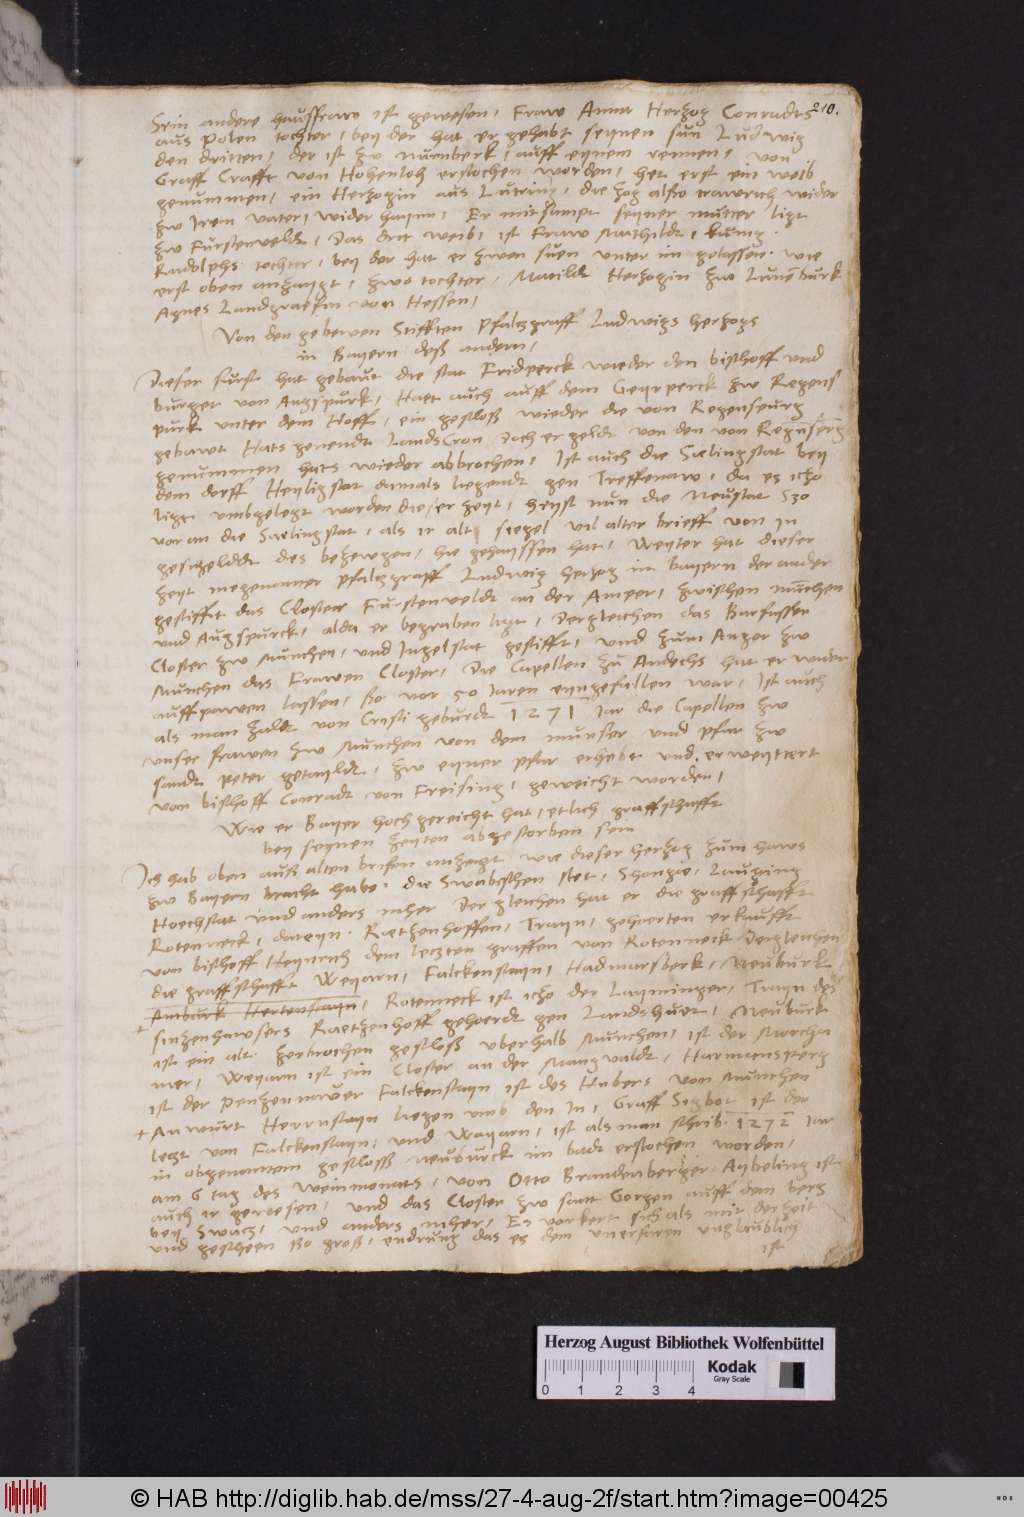 210.
Sein andere hausfraw ist gewesen, Fraw Anna Herzog Conradts
aus Polen tochter, bey der hat er gehabt seynen sun Ludwig
den dritten, der ist zw Nurmberk, auff eynem rennen, von
Graff Crafft von Hohenloh erstochen worden, het erst ein weib
genummen, ein Herzogin aus Lutring, die zog also trawrich wider
zw Irem vater, wider haym. Er mitsampt seyner mutter ligt
zw Furstenveldt, Das drit weib, ist Fraw Mathildt, kunig
Rudolphs tochter, bey der hat er zwen suen unter im gelassen. wie
erst oben anzaygt, zwo tochter, Matildt Herzogin zw Lunenburk
Agnes Landgraefin von Hessen,
Von den gebewen Stifften Pfaltzgraff Ludwigs herzogs
in Bayern deß andern,
Dieser furst hat gebaut die stat Fridperck wieder den bischoff und
burger von Augspurk, Haet auch auff dem Geyrperck zw Regens
purk unter dem Hoff, ein geschloß wieder die von Regenspurg
gebawt Hats genendt LandsCron Doch er geldt von den von Regenspurg
genummen hats wieder abbrochen, Ist auch die Saelingstat bey
dem dorff Heyligstat damals liegendt gen Treffenaw, da es icho
ligt umbgelegt worden dieser zeyt, heyst nun die Neustat
voran die Saelingstat, als ir alt siegel vil alter brieff von in
des bezewgen, hie gehayssen hat, Weyter hat dieser
zeyt megenanner pfaltzgraff Ludwig herzog in bayern der ander
gestifft das Closter Furstenveldt an der Amper, zwischen munchen
und Augspurck, alda er begraben ligt, Dergleichen das Barfusser
Closter zw Munchen, und Ingelstat gestifft, und zum Anger zw
Munchen das Frawen Closter, Die Capellen zu Andechs hat er wider
auffpawen lassen, ßo vor 50 Jaren eyngefallen war, Ist auch
als man zaldt von Cristi geburdt 1271 Jar die Capellen zw
unser frawen zw Munchen von dem munster und pfar zw
sandt Peter getayldt, zw eyner pfar erhebt und erweyttert
von bischoff Conradt von Freising, geweicht worden,
Wie er Bayer hoch gereicht hat, etlich graffschafft
bey seynen zeyten abgestorben sein
Ich hab oben auß alten brifen anzeigt wie dieser herzog zum haws
zw Bayern bracht habe. die Swabischen stet, Shongw, Lauging
Hoechstat und anders mher Dergleichen hat er die graffschafft
Rotenneck, dareyn. Raethenhoffen, Trayn, gehoerten erkaufft
von bischoff Heynrich dem leczten graffen von Rotenneck Dergleichen
die graffschafft Weyarn, Falckenstayn, Hadmarsberk, Neuburk
Antburk Hertenstayn, Rotenneck ist icho der Layminger, Trayn des
+ sinzenhawsers Raethenhoff gehoerdt gen Landshuet, Neuburk
ist ein alt zerbrochen geschloß uberhalb Munchen, ist der Morcha
mer, Weyarn ist ein Closter an der Mangvaldt, Harmansperg
ist der Penzennawer Falckenstayn ist des Hubers von Munchen
+ Anwurt Herrnstayn liegen umb den In, Graff Sigbot ist der
leczt von Falckenstayn, und Wayarn, ist als man schrib 1272 Jar
in obgenannem geschloß Neuburck im badt erstochen worden,
am 6 tag des Weinmonats, von Otto Brandenberger Aybeling ist
auch ir gewesen, und das Closter zw sant Gorgen auff dem berg
bey Swacz, und anders mher, Es verkert sich als mit der zeit
und gescheen ßo groß, endrung das es dem unerfaren unglaublich
ist
Herzog August Bibliothek Wolfenbüttel
0 1 2 3 4
Kodak
Gray Scale
© HAB http://diglib.hab.de/mss/27-4-aug-2f/start.htm?image=00425